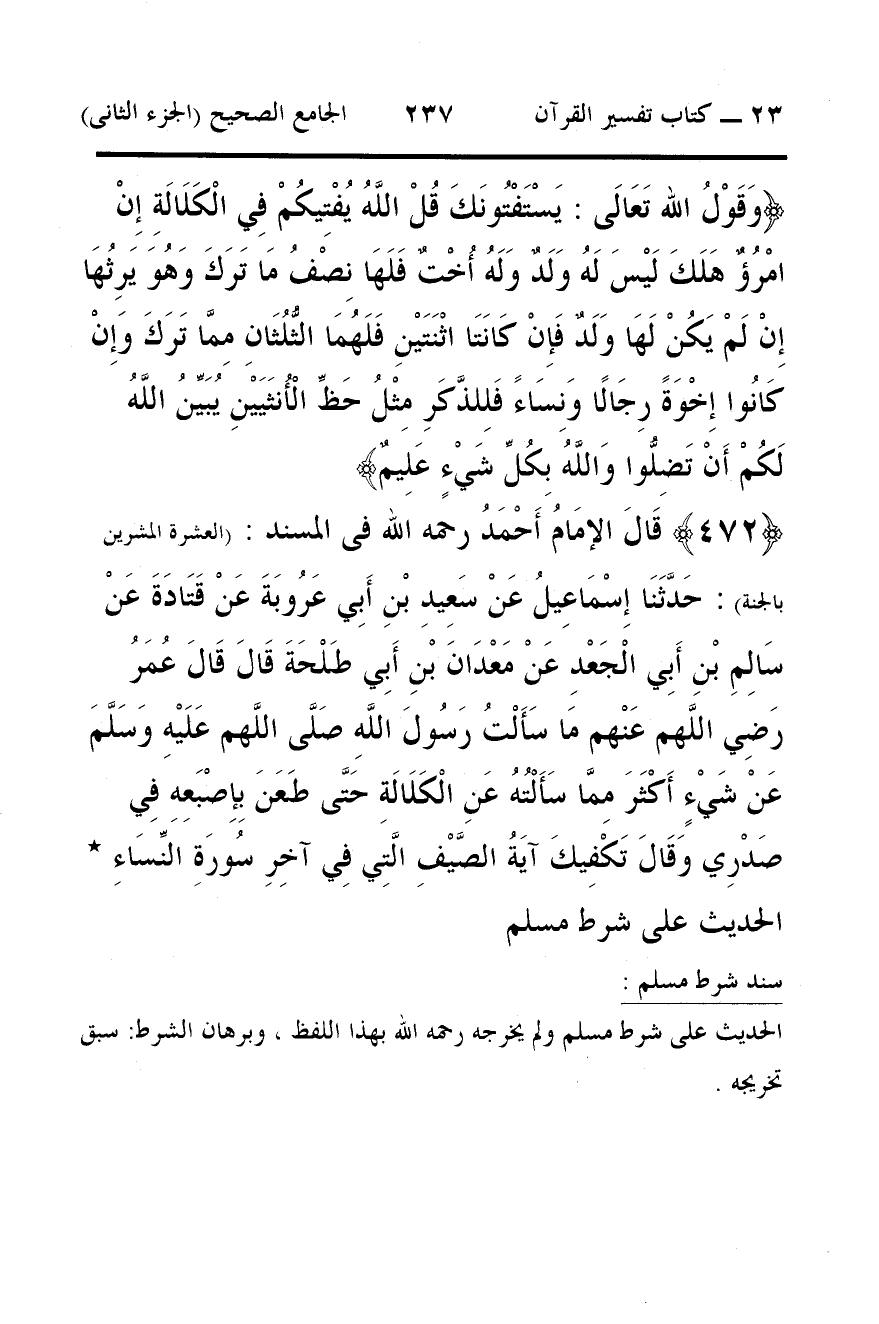 ٢٣ ــ كتاب تفسير القرآن ٢٣٧ الجامع الصحيح (الجزء الثانى)
﴿وَقَوْلُ الله تَعَالَى : يَسْتَفْتُونَكَ قُلْ اللَّهُ يُفْتِيكُمْ فِي الْكَلَالَةِ إِنْ
امْرُؤٌ هَلَكَ لَيْسَ لَهُ وَلَدٌ وَلَهُ أُخْتٌ فَلَهَا نِصْفُ مَا تَرَكَ وَهُوَ يَرِثُهَا
إِنْ لَمْ يَكُنْ لَهَا وَلَدٌ فَإِنْ كَانَتَا اثْنَتَيْنِ فَلَهُمَا الثُّلُثَانِ مِمَّا تَرَكَ وَإِنْ
كَانُوا إِخْوَةً رِجَالًا وَنِسَاءً فَلِلذَّكَرِ مِثْلُ حَظِّ الْأُنثَيَيْنِ يُبَيِّنُ اللَّهُ
لَكُمْ أَنْ تَضِلُّوا وَاللَّهُ بِكُلِّ شَيْءٍ عَلِيمٌ﴾
﴿٤٧٢﴾ قَالَ الإِمَامُ أَحْمَدُ رحمه الله فى المسند : (العشرة المشرين
بالجنة) : حَدَّثَنَا إِسْمَاعِيلُ عَنْ سَعِيدِ بْنِ أَبِي عَرُوبَةَ عَنْ قَتَادَةَ عَنْ
سَالِمِ بْنِ أَبِي الْجَعْدِ عَنْ مَعْدَانَ بْنِ أَبِي طَلْحَةَ قَالَ قَالَ عُمَرُ
رَضِي اللَّهم عَنْهم مَا سَأَلْتُ رَسُولَ اللَّهِ صَلَّى اللَّهم عَلَيْهِ وَسَلَّمَ
عَنْ شَيْءٍ أَكْثَرَ مِمَّا سَأَلْتُهُ عَنِ الْكَلَالَةِ حَتَّى طَعَنَ بِإِصْبَعِهِ فِي
صَدْرِي وَقَالَ تَكْفِيكَ آيَةُ الصَّيْفِ الَّتِي فِي آخِرِ سُورَةِ النِّسَاءِ *
الحديث على شرط مسلم
سند شرط مسلم :
الحديث على شرط مسلم ولم يخرجه رحمه الله بهذا اللفظ ، وبرهان الشرط: سبق
تخريجه .